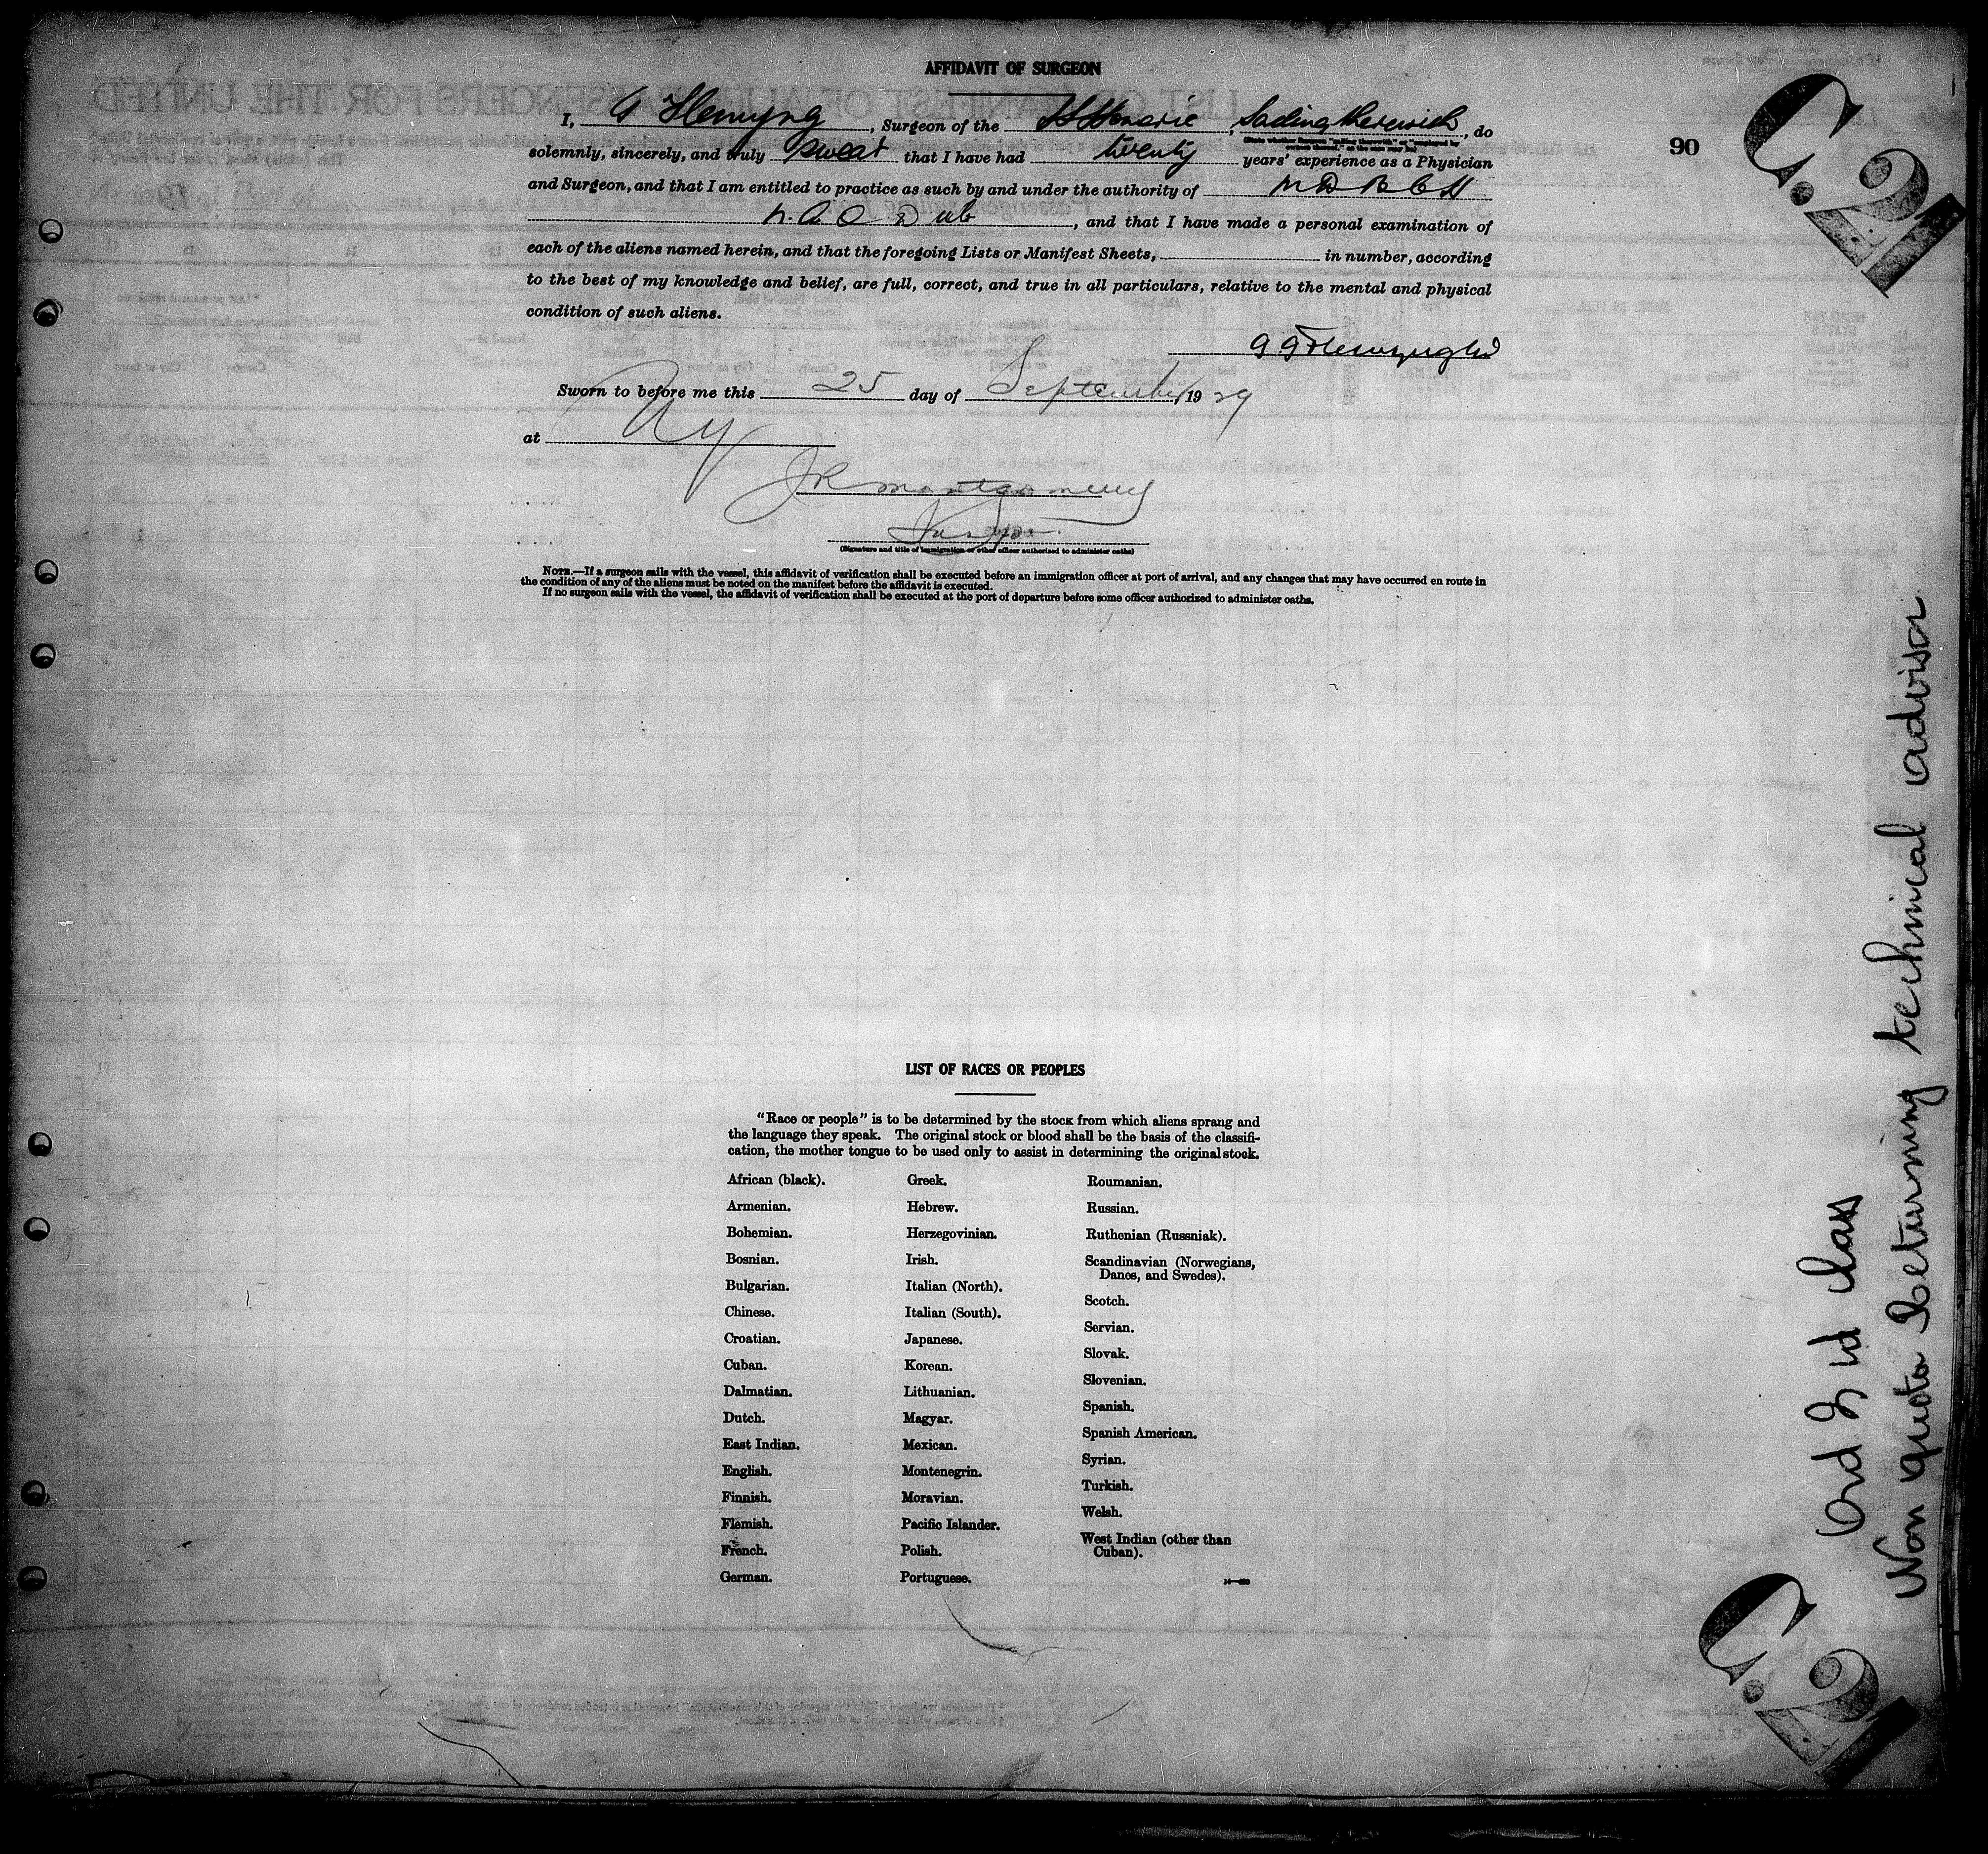 AFFIDAVIT OF SURGEON
I, Flemyng, Surgeon of the Sailing therewith, do
solemnly, sincerely, and truly swear that I have had twenty years' experience as a Physician
and Surgeon, and that I am entitled to practice as such by and under the authority of
, and that I have made a personal examination of
each of the aliens named herein, and that the foregoing Lists or Manifest Sheets, in number, according
to the best of my knowledge and belief, are full, correct, and true in all particulars, relative to the mental and physical
condition of such aliens.
Sworn to before me this 25 day of September, 1929
at NY
JR Montgomery
(Signature and title of immigration or other officer authorized to administer oaths)
NOTE.—If a surgeon sails with the vessel, this affidavit of verification shall be executed before an immigration officer at port of arrival, and any changes that may have occurred en route in
the condition of any of the aliens must be noted on the manifest before the affidavit is executed.
If no surgeon sails with the vessel, the affidavit of verification shall be executed at the port of departure before some officer authorized to administer oaths.
90
C.21
LIST OF RACES OR PEOPLES
"Race or people" is to be determined by the stock from which aliens sprang and
the language they speak. The original stock or blood shall be the basis of the classifi-
cation, the mother tongue to be used only to assist in determining the original stock.
African (black).
Armenian.
Bohemian.
Bosnian.
Bulgarian.
Chinese.
Croatian.
Cuban.
Dalmatian.
Dutch.
East Indian.
English.
Finnish.
Flemish.
French.
German.
Greek.
Hebrew.
Herzegovinian.
Irish.
Italian (North).
Italian (South).
Japanese.
Korean.
Lithuanian.
Magyar.
Mexican.
Montenegrin.
Moravian.
Pacific Islander.
Polish.
Portuguese.
Roumanian.
Russian.
Ruthenian (Russniak).
Scandinavian (Norwegians,
Danes, and Swedes).
Scotch.
Servian.
Slovak.
Slovenian.
Spanish.
Spanish American.
Syrian.
Turkish.
Welsh.
West Indian (other than
Cuban).
class
Non quota Returning technical advisor
C.21